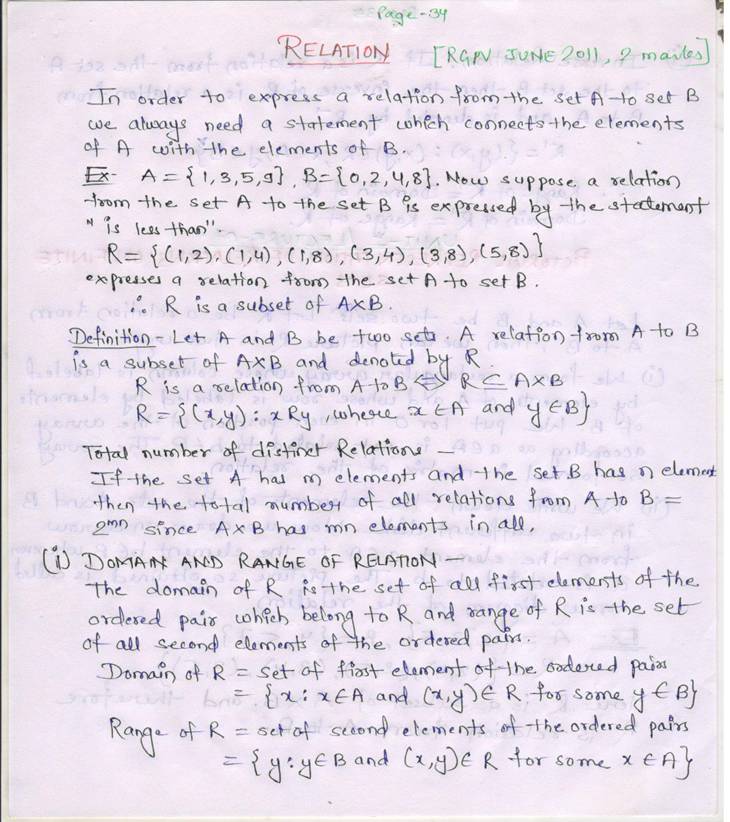 Page-34
RELATION [RGPV JUNE 2011, 2 marks]
In order to express a relation from the set A to set B
we always need a statement which connects the elements
of A with the elements of B.
Ex- A = {1,3,5,9}, B={0,2,4,8}. Now suppose a relation
from the set A to the set B is expressed by the statement
"is less than"
R= {(1,2), (1,4), (1,8), (3,4), (3,8), (5,8)}
expresses a relation from the set A to set B.
∴ R is a subset of A×B.
Definition- Let A and B be two sets A relation from A to B
is a subset of A×B and denoted by R.
R is a relation from A to B ⇔ R ⊆ A×B
R = {(x,y) : xRy, where x∈A and y∈B}
Total number of distinct Relations —
If the set A has m elements and the set B has n element
then the total number of all relations from A to B =
2^mn since A×B has mn elements in all.
(i) DOMAIN AND RANGE OF RELATION —
The domain of R is the set of all first elements of the
ordered pair which belong to R and range of R is the set
of all second elements of the ordered pairs.
Domain of R = set of first element of the ordered pairs
= {x : x∈A and (x,y)∈ R for some y ∈ B}
Range of R = set of second elements of the ordered pairs
= {y : y∈B and (x,y)∈ R for some x ∈ A}